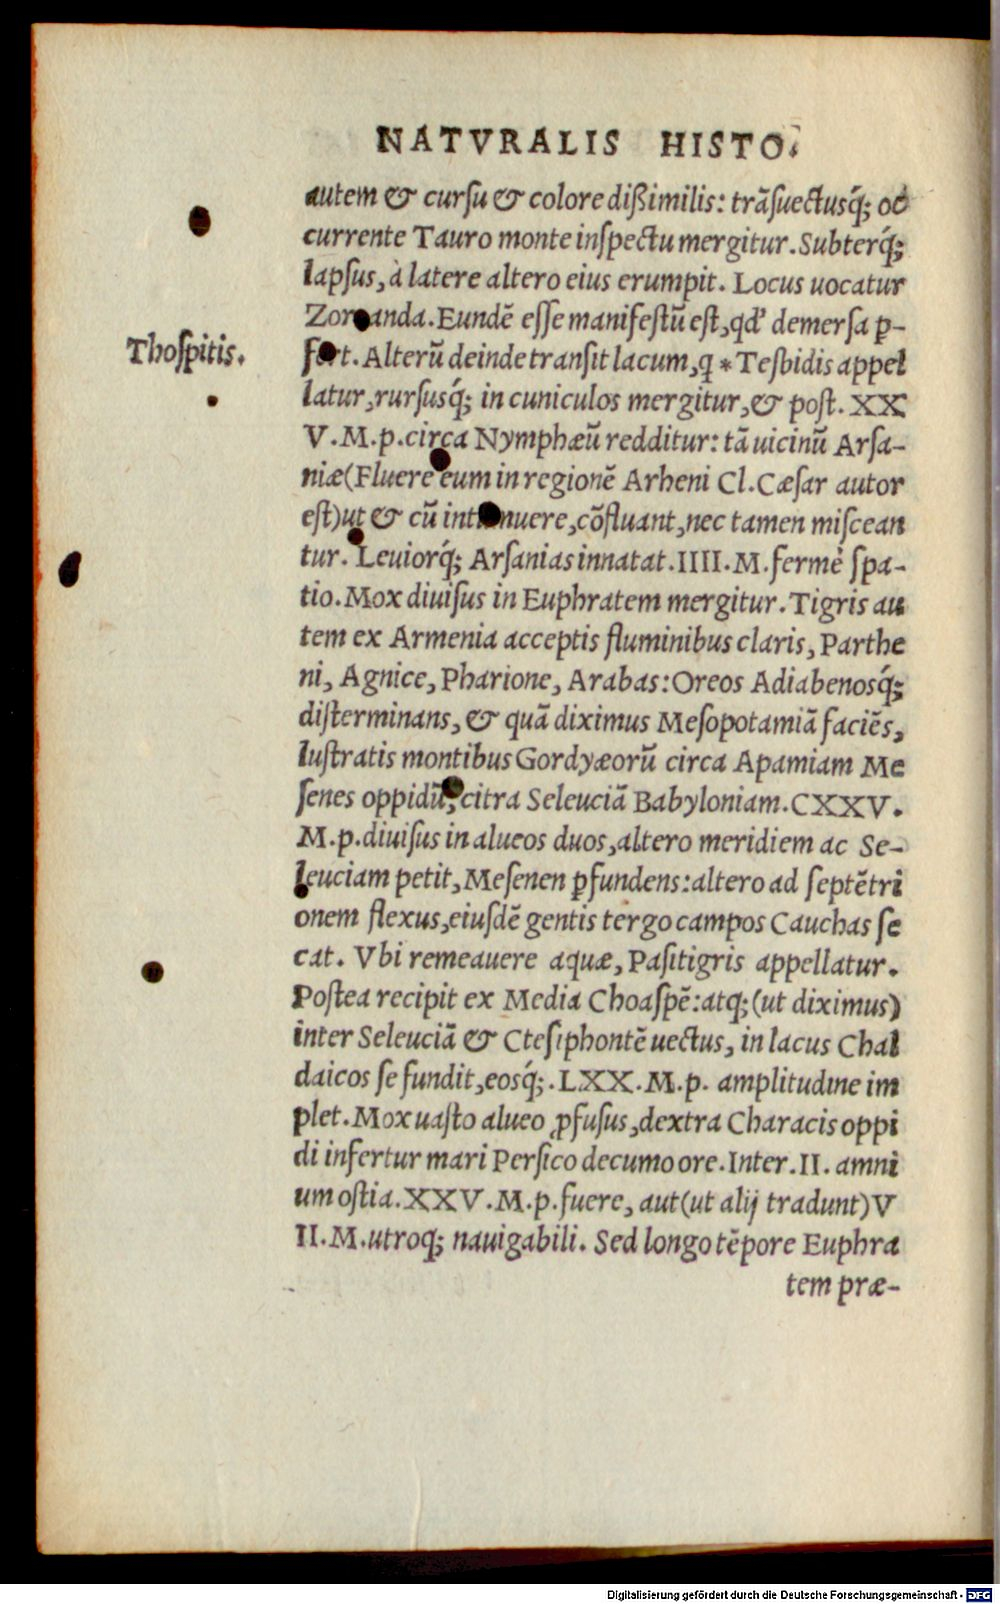 NATVRALIS HISTO.
autem & cursu & colore dißimilis: trãsuectusq́; oc
currente Tauro monte inspectu mergitur. Subterq́;
lapsus, à latere altero eius erumpit. Locus uocatur
Zoroanda. Eundẽ esse manifestũ est, qd' demersa ꝑ-
Thospitis.
fert. Alterũ deinde transit lacum, q * Tesbidis appel
latur, rursusq́; in cuniculos mergitur, & post. XX
V. M. p. circa Nymphæũ redditur: tã uicinũ Arsa-
niæ (Fluere eum in regionẽ Arheni Cl. Cæsar autor
est) ut & cũ intumuere, cõfluant, nec tamen miscean
tur. Leuiorq́; Arsanias innatat. IIII. M. fermè spa-
tio. Mox diuisus in Euphratem mergitur. Tigris au
tem ex Armenia acceptis fluminibus claris, Parthe
ni, Agnice, Pharione, Arabas: Oreos Adiabenosq́;
disterminans, & quã diximus Mesopotamiã faciẽs,
lustratis montibus Gordyæorũ circa Apamiam Me
senes oppidũ, citra Seleuciã Babyloniam. CXXV.
M. p. diuisus in alueos duos, altero meridiem ac Se-
leuciam petit, Mesenen ꝑfundens: altero ad septẽtri
onem flexus, eiusdẽ gentis tergo campos Cauchas se
cat. Vbi remeauere aquæ, Pasitigris appellatur.
Postea recipit ex Media Choaspẽ: atq; (ut diximus)
inter Seleuciã & Ctesiphontẽ uectus, in lacus Chal
daicos se fundit, eosq́;. LXX. M. p. amplitudine im
plet. Mox uasto alueo ꝓfusus, dextra Characis oppi
di infertur mari Persico decumo ore. Inter. II. amni
um ostia. XXV. M. p. fuere, aut (ut alij tradunt) V
II. M. utroq; nauigabili. Sed longo tẽpore Euphra
tem præ-
Digitalisierung gefördert durch die Deutsche Forschungsgemeinschaft - DFG